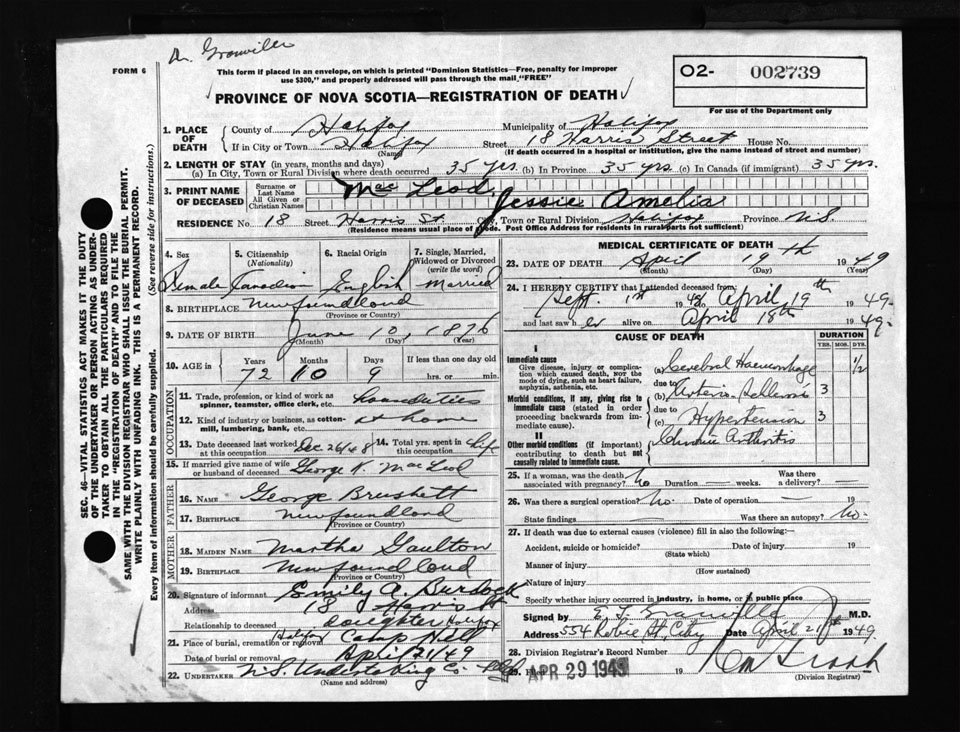 Dr. Granville
FORM 6
This form if placed in an envelope, on which is printed "Dominion Statistics—Free, penalty for improper
use $300," and properly addressed will pass through the mail "FREE"
PROVINCE OF NOVA SCOTIA—REGISTRATION OF DEATH
O2- 002739
For use of the Department only
SEC. 46—VITAL STATISTICS ACT MAKES IT THE DUTY
OF THE UNDERTAKER OR PERSON ACTING AS UNDER-
TAKER TO OBTAIN ALL THE PARTICULARS REQUIRED
IN THE "REGISTRATION OF DEATH" AND TO FILE THE
SAME WITH THE DIVISION REGISTRAR WHO SHALL ISSUE THE BURIAL PERMIT.
WRITE PLAINLY WITH UNFADING INK. THIS IS A PERMANENT RECORD.
Every item of information should be carefully supplied. (See reverse side for instructions.)
1. PLACE OF DEATH County of Halifax Municipality of Halifax
If in City or Town Halifax Street 18 Harris Street House No.
(Name) (If death occurred in a hospital or institution, give the name instead of street and number)
2. LENGTH OF STAY (in years, months and days)
(a) In City, Town or Rural Division where death occurred 35 yrs. (b) In Province 35 yrs. (c) In Canada (if immigrant) 35 yrs.
3. PRINT NAME OF DECEASED Surname or Last Name MacLeod
All Given or Christian Names Jessie Amelia
RESIDENCE No 18 Street Harris St. City, Town or Rural Division Halifax Province N.S.
(Residence means usual place of abode. Post Office Address for residents in rural parts not sufficient)
4. Sex 5. Citizenship (Nationality) 6. Racial Origin 7. Single, Married, Widowed or Divorced (write the word)
Female Canadian English Married
8. BIRTHPLACE Newfoundland
(Province or Country)
9. DATE OF BIRTH June 10, 1876
(Month) (Day) (Year)
10. AGE in Years Months Days If less than one day old
72 10 9 hrs. or min.
OCCUPATION
11. Trade, profession, or kind of work as spinner, teamster, office clerk, etc. house duties
12. Kind of industry or business, as cotton-mill, lumbering, bank, etc. at home
13. Date deceased last worked at this occupation Dec 26/48 14. Total yrs. spent in this occupation life
15. If married give name of wife or husband of deceased George K. MacLeod
FATHER
16. NAME George Brushett
17. BIRTHPLACE Newfoundland
(Province or Country)
MOTHER
18. MAIDEN NAME Martha Gaulton
19. BIRTHPLACE Newfoundland
(Province or Country)
20. Signature of informant Emily A. Burdock
Address 18 Harris St
Relationship to deceased daughter Halifax
21. Place of burial, cremation or removal Halifax Camp Hill
Date of burial or removal April 21/49
22. UNDERTAKER N.S. Undertaking Co.
(Name and address)
MEDICAL CERTIFICATE OF DEATH
23. DATE OF DEATH April 19th 1949
(Month) (Day) (Year)
24. I HEREBY CERTIFY that I attended deceased from:
Sept. 1st 1948 to April 19th 1949.
and last saw her alive on April 18th 1949.
CAUSE OF DEATH DURATION
YRS. MOS. DYS.
I
Immediate cause
Give disease, injury or complication which caused death, not the mode of dying, such as heart failure, asphyxia, asthenia, etc.
(a) Cerebral Haemorrhage 1/2
due to
Morbid conditions, if any, giving rise to immediate cause (stated in order proceeding backwards from immediate cause).
(b) Arterio-Sclerosis 3
due to
(c) Hypertension 3
II
Other morbid conditions (if important) contributing to death but not causally related to immediate cause.
Chronic Arthritis
25. If a woman, was the death associated with pregnancy? No Duration — weeks. Was there a delivery? —
26. Was there a surgical operation? No. Date of operation — 19
State findings — Was there an autopsy? No.
27. If death was due to external causes (violence) fill in also the following:
Accident, suicide or homicide? Date of injury 19
(State which)
Manner of injury
(How sustained)
Nature of injury
Specify whether injury occurred in industry, in home, or in public place
Signed by E. F. Granville M.D.
Address 554 Robie St. City Date April 21st 1949
28. Division Registrar's Record Number
29. Filed APR 29 1949 19
(Division Registrar)